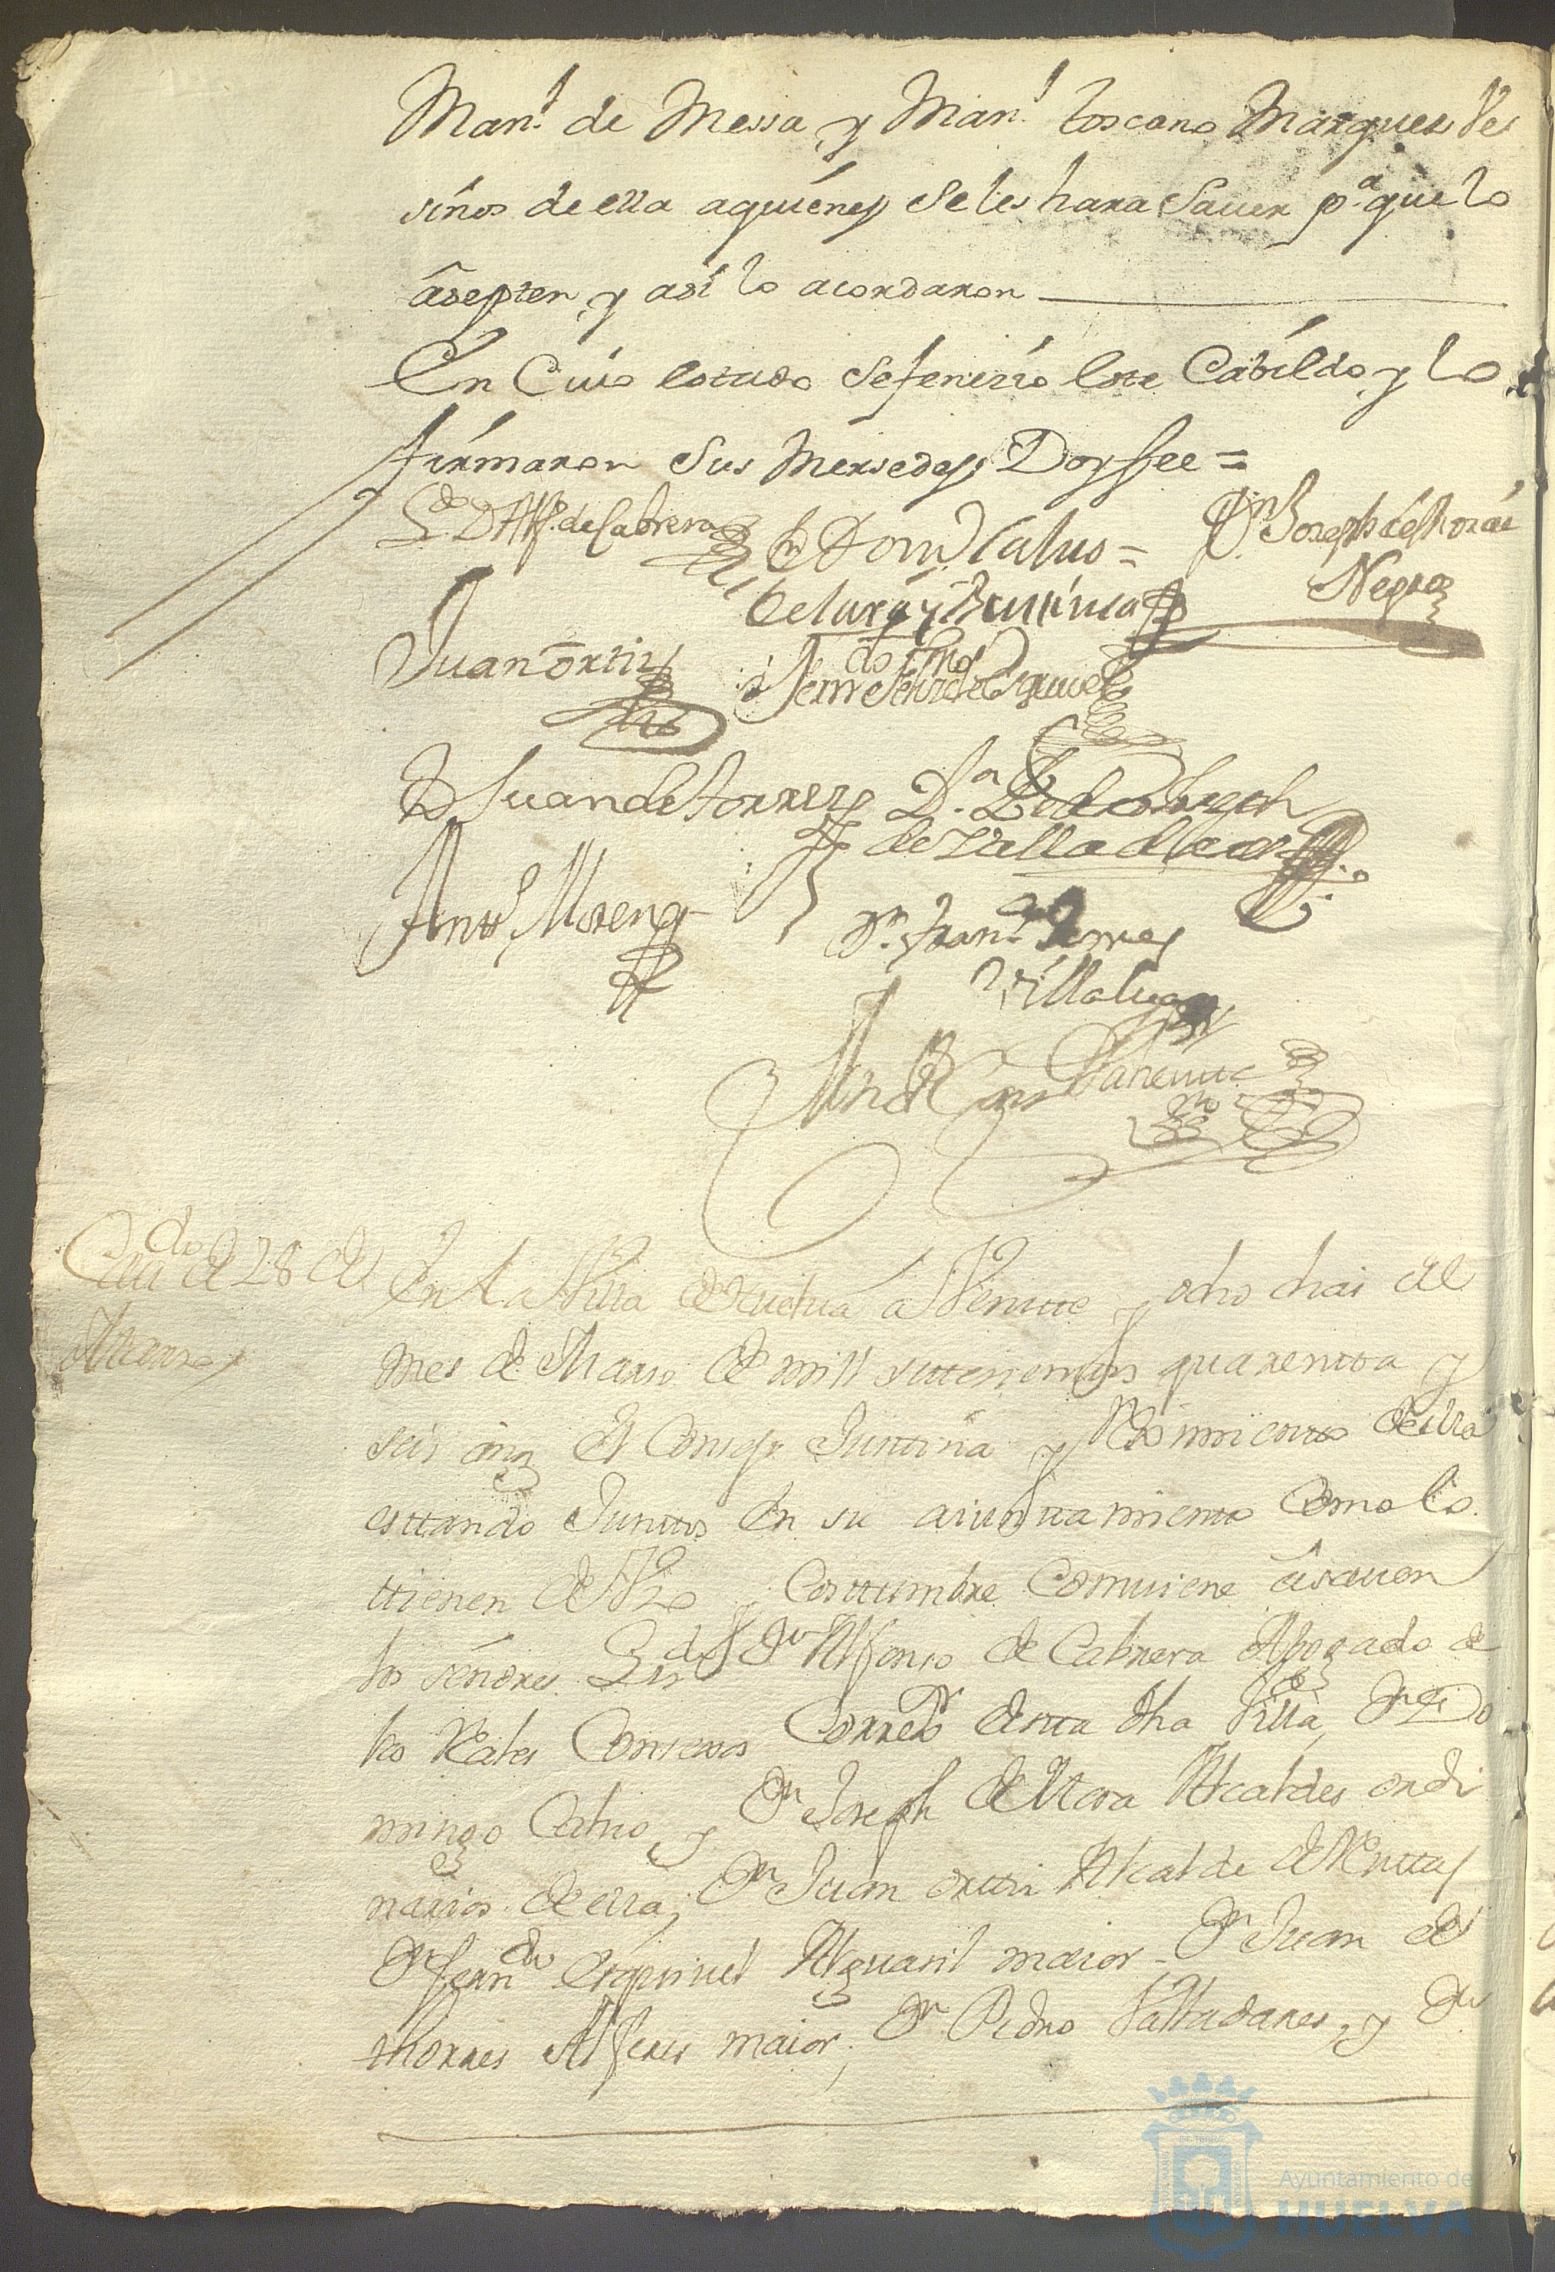 Man.l de Messa y Man.l toscano Marques Ve
sinos de ella aquienes se les hara Saver p.a que lo
asepten y asi lo acordaron
En Cuio estado sefenesio este Cabildo y lo
firmaron Sus Mersedes Doy fee =
L.do D Alf.o de Cabrera
D.n Dom.o Calvo =
D.n Joseph de Mora
Negro
Juan ortiz
Fern.do Esquivel
D Juan de torres
D.n Pedro
de Valladares
Ant.o Moreno
D.n Fran.co
Villalva
Cav.do de 28 de
Marzo
En la Villa de Huelva a Veintte y ocho dias del
mes de Marso de mill settesientos quarentta y
seis años El Consejo Justtisia y Reximientto de ella
esttando Junttos En su aiunttamientto Como lo
ttienen de Vso y Costtumbre Comviene asaver
los señores Lis.do D.n Alfonso de Cabrera Abogado de
los Reales Consexos Correx.or de estta dha Villa, D.nes Do
mingo Calvo, y D.n Joseph de Mora Alcaldes ordi
narios de ella, D.n Juan orttiz Alcalde de Renttas
D.n Fern.do Esquivel Alguasil maior D.n Juan de
thorres Alferes maior, D.n Pedro Valladares, y D.n
Ayuntamiento de
HUELVA